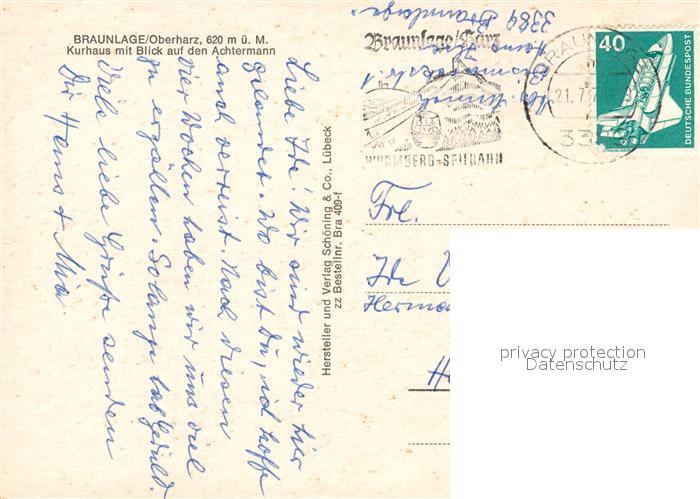 BRAUNLAGE/Oberharz, 620 m ü. M.
Kurhaus mit Blick auf den Achtermann
Liebe Ide! Wir sind wieder hier
gelandet. Wo bist Du, ich hoffe
auch verreist. Nach diesen
vier Wochen haben wir uns viel
zu erzählen. Solang hab Geduld.
Viele liebe Grüße senden
Dir Hans + Mia.
Hersteller und Verlag Schöning & Co., Lübeck
zz Bestellnr. Bra 409-f
3389 Braunlage
Braunlage/Harz
WURMBERG-SEILBAHN
BRAUNLAGE
21.7.
40
DEUTSCHE BUNDESPOST
Frl.
Ide
Herman
privacy protection
Datenschutz